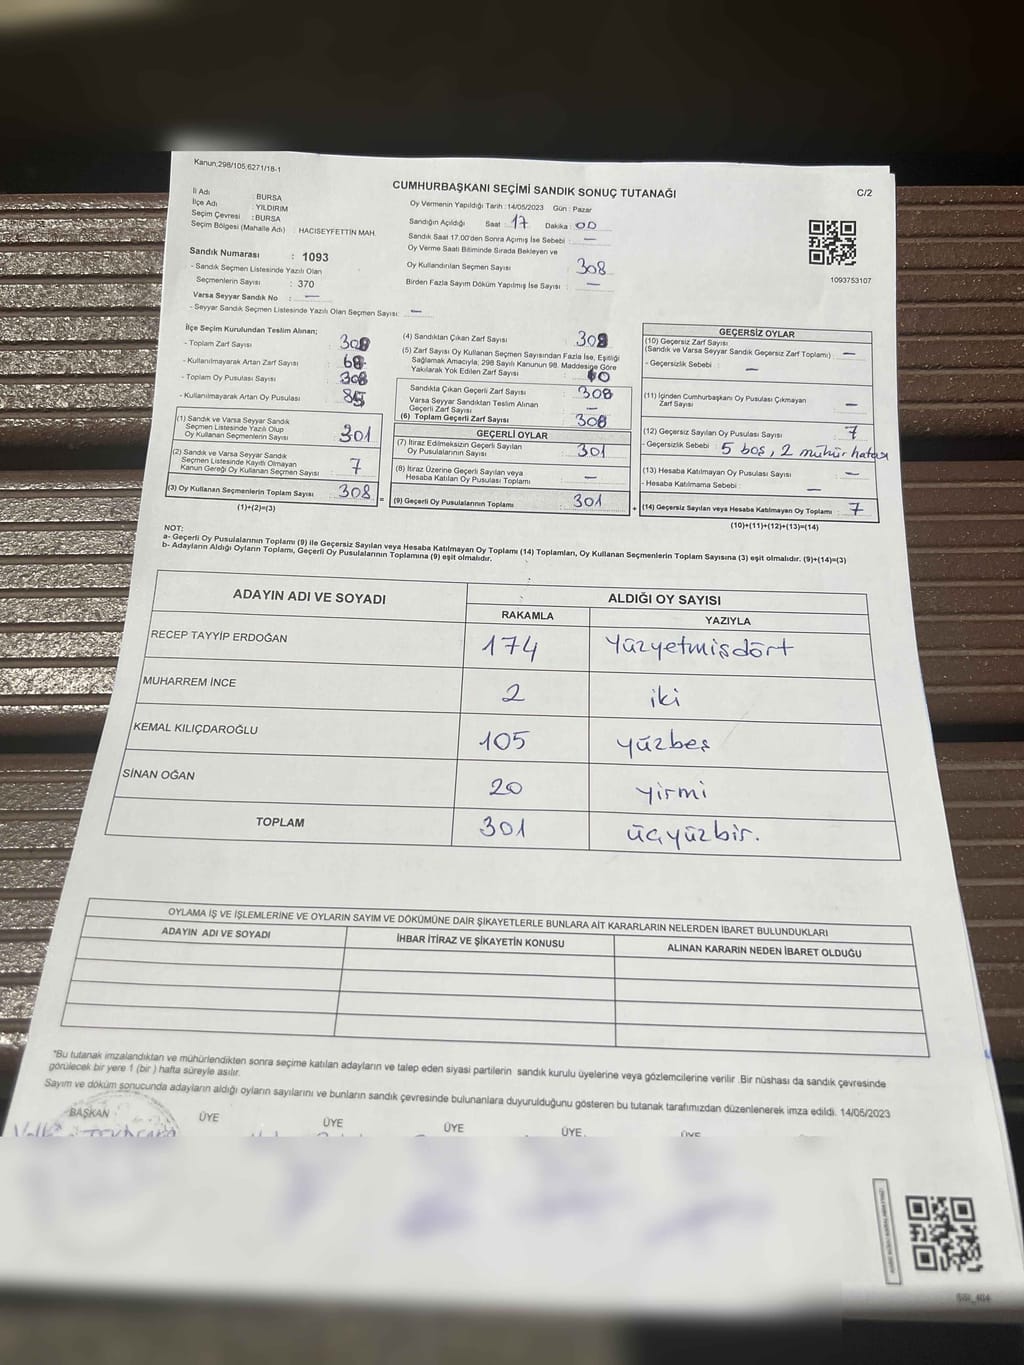 Kanun,298/105,6271/18-1
CUMHURBAŞKANI SEÇİMİ SANDIK SONUÇ TUTANAĞI
C/2
İl Adı : BURSA
İlçe Adı : YILDIRIM
Seçim Çevresi : BURSA
Seçim Bölgesi (Mahalle Adı) : HACISEYFETTİN MAH.
Sandık Numarası : 1093
- Sandık Seçmen Listesinde Yazılı Olan
Seçmenlerin Sayısı : 370
Varsa Seyyar Sandık No : —
- Seyyar Sandık Seçmen Listesinde Yazılı Olan Seçmen Sayısı: —
Oy Vermenin Yapıldığı Tarih : 14/05/2023 Gün : Pazar
Sandığın Açıldığı Saat : 17 Dakika : 00
Sandık Saat 17.00'den Sonra Açılmış İse Sebebi : —
Oy Verme Saati Bitiminde Sırada Bekleyen ve
Oy Kullandırılan Seçmen Sayısı : 308
Birden Fazla Sayım Döküm Yapılmış İse Sayısı : —
1093753107
İlçe Seçim Kurulundan Teslim Alınan;
- Toplam Zarf Sayısı
- Kullanılmayarak Artan Zarf Sayısı
- Toplam Oy Pusulası Sayısı
- Kullanılmayarak Artan Oy Pusulası
(1) Sandık ve Varsa Seyyar Sandık
Seçmen Listesinde Yazılı Olup
Oy Kullanan Seçmenlerin Sayısı : 301
(2) Sandık ve Varsa Seyyar Sandık
Seçmen Listesinde Kayıtlı Olmayan
Kanun Gereği Oy Kullanan Seçmen Sayısı : 7
(3) Oy Kullanan Seçmenlerin Toplam Sayısı : 308
(1)+(2)=(3)
(4) Sandıktan Çıkan Zarf Sayısı : 308
(5) Zarf Sayısı Oy Kullanan Seçmen Sayısından Fazla İse, Eşitliği
Sağlamak Amacıyla, 298 Sayılı Kanunun 98. Maddesine Göre
Yakılarak Yok Edilen Zarf Sayısı : 0
Sandıkta Çıkan Geçerli Zarf Sayısı : 308
Varsa Seyyar Sandıktan Teslim Alınan
Geçerli Zarf Sayısı : —
(6) Toplam Geçerli Zarf Sayısı : 308
GEÇERLİ OYLAR
(7) İtiraz Edilmeksizin Geçerli Sayılan
Oy Pusulalarının Sayısı : 301
(8) İtiraz Üzerine Geçerli Sayılan veya
Hesaba Katılan Oy Pusulası Toplamı : —
= (9) Geçerli Oy Pusulalarının Toplamı : 301
GEÇERSİZ OYLAR
(10) Geçersiz Zarf Sayısı
(Sandık ve Varsa Seyyar Sandık Geçersiz Zarf Toplamı) : —
- Geçersizlik Sebebi : —
(11) İçinden Cumhurbaşkanı Oy Pusulası Çıkmayan
Zarf Sayısı : —
(12) Geçersiz Sayılan Oy Pusulası Sayısı : 7
- Geçersizlik Sebebi : 5 boş, 2 mühür hatası
(13) Hesaba Katılmayan Oy Pusulası Sayısı : —
- Hesaba Katılmama Sebebi : —
+ (14) Geçersiz Sayılan veya Hesaba Katılmayan Oy Toplamı : 7
(10)+(11)+(12)+(13)=(14)
NOT:
a- Geçerli Oy Pusulalarının Toplamı (9) ile Geçersiz Sayılan veya Hesaba Katılmayan Oy Toplamı (14) Toplamları, Oy Kullanan Seçmenlerin Toplam Sayısına (3) eşit olmalıdır. (9)+(14)=(3)
b- Adayların Aldığı Oyların Toplamı, Geçerli Oy Pusulalarının Toplamına (9) eşit olmalıdır.
ADAYIN ADI VE SOYADI ALDIĞI OY SAYISI
RAKAMLA YAZIYLA
RECEP TAYYİP ERDOĞAN 174 yüzyetmişdört
MUHARREM İNCE 2 iki
KEMAL KILIÇDAROĞLU 105 yüzbeş
SİNAN OĞAN 20 yirmi
TOPLAM 301 üçyüzbir.
OYLAMA İŞ VE İŞLEMLERİNE VE OYLARIN SAYIM VE DÖKÜMÜNE DAİR ŞİKAYETLERLE BUNLARA AİT KARARLARIN NELERDEN İBARET BULUNDUKLARI
ADAYIN ADI VE SOYADI İHBAR İTİRAZ VE ŞİKAYETİN KONUSU ALINAN KARARIN NEDEN İBARET OLDUĞU
"Bu tutanak imzalandıktan ve mühürlendikten sonra seçime katılan adayların ve talep eden siyasi partilerin sandık kurulu üyelerine veya gözlemcilerine verilir. Bir nüshası da sandık çevresinde
görülecek bir yere 1 (bir ) hafta süreyle asılır.
Sayım ve döküm sonucunda adayların aldığı oyların sayılarını ve bunların sandık çevresinde bulunanlara duyurulduğunu gösteren bu tutanak tarafımızdan düzenlenerek imza edildi. 14/05/2023
BAŞKAN ÜYE ÜYE ÜYE ÜYE ÜYE